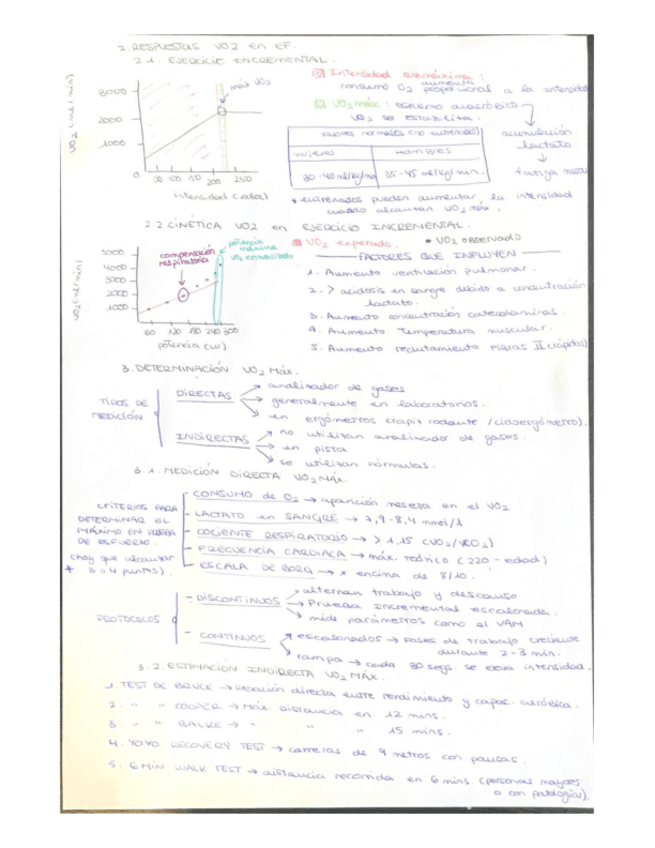 2. RESPUESTAS VO2 en EF.
2.1. EJERCICIO INCREMENTAL.
VO2 (ml/min)
3000
2000
1000
0
50 100 150 200 250
intensidad (watios)
máx VO2
Intensidad submáxima:
consumo O2 aumenta proporcional a la intensidad
VO2 máx: esfuerzo anaeróbico
VO2 se estabiliza.
acumulación
lactato
fatiga
valores normales (no entrenados)
mujeres
Hombres
30-40 ml/kg/min
35-45 ml/kg/min.
* entrenados pueden aumentar la intensidad
cuando alcanzan VO2 máx.
2.2. CINÉTICA VO2 en EJERCICIO INCREMENTAL.
VO2 (ml/min)
5000
4000
3000
2000
1000
60 120 180 240 300
potencia (W)
compensación
respiratoria
potencia
máxima
VO2 estabilizado
VO2 esperado.
• VO2 observado
FACTORES QUE INFLUYEN
1. Aumento ventilación pulmonar.
2. > acidosis en sangre debido a concentración
lactato.
3. Aumento concentración catecolaminas.
4. Aumento temperatura muscular.
5. Aumento reclutamiento fibras II (rápidas)
3. DETERMINACIÓN VO2 Máx.
TIPOS DE
MEDICIÓN
DIRECTAS
→ analizador de gases
→ generalmente en laboratorios.
→ en ergómetros (tapiz rodante / cicloergómetro).
INDIRECTAS
→ no utilizan analizador de gases.
→ en pista
→ se utilizan fórmulas.
3.1. MEDICIÓN DIRECTA VO2 MÁX.
CRITERIOS PARA
DETERMINAR EL
MÁXIMO EN PRUEBA
DE ESFUERZO.
(hay que alcanzar
* 3 o 4 puntos).
CONSUMO de O2 → aparición meseta en el VO2
LACTATO en SANGRE → 7,9-8,4 mmol/l
COCIENTE RESPIRATORIO → > 1,15 (VO2/VCO2)
FRECUENCIA CARDIACA → máx. teórico (220 - edad)
ESCALA DE BORG → x encima de 8/10.
PROTOCOLOS
- DISCONTINUOS
→ alternan trabajo y descanso
→ Prueba incremental escalonada.
→ mide parámetros como el VAM
- CONTINUOS
→ escalonados → fases de trabajo creciente
durante 2-3 min.
→ rampa → cada 30 segs. se eleva intensidad.
3.2. ESTIMACIÓN INDIRECTA VO2 MÁX.
1. TEST DE BRUCE → relación directa entre rendimiento y capac. aeróbica.
2. " " COOPER → Máx. Distancia en 12 mins.
3. " " BALKE → " " " 15 mins.
4. YOYO RECOVERY TEST → carreras de 9 metros con pausas.
5. 6 MIN WALK TEST → distancia recorrida en 6 mins. (personas mayores
o con patologías).